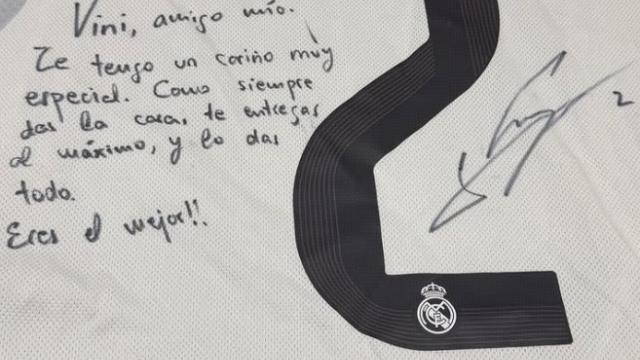 Vini, amigo mío.
Te tengo un cariño muy
especial. Como siempre
das la cara, te entregas
al máximo, y lo das
todo.
Eres el mejor!!
2
2